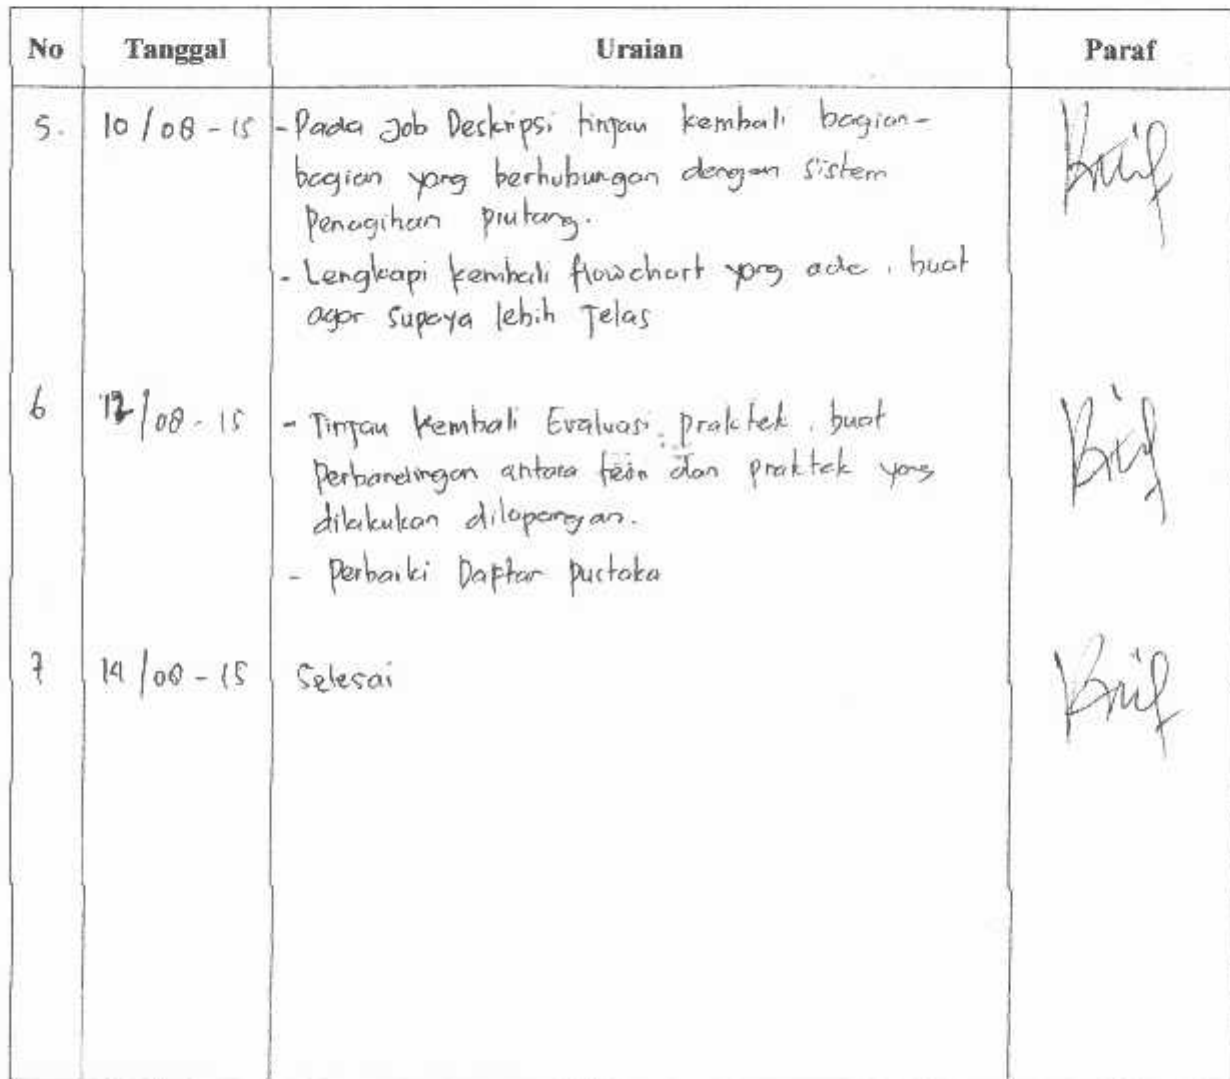 No Tanggal Uraian Paraf
5. 10/08-15 - Pada Job Deskripsi tinjau kembali bagian-
bagian yang berhubungan dengan sistem
Penagihan piutang.
- Lengkapi kembali flowchart yang ada, buat
agar supaya lebih Jelas
6 12/08-15 - Tinjau kembali Evaluasi praktek, buat
Perbandingan antara teori dan praktek yang
dilakukan dilapangan.
- Perbaiki Daftar Pustaka
7 14/08-15 Selesai